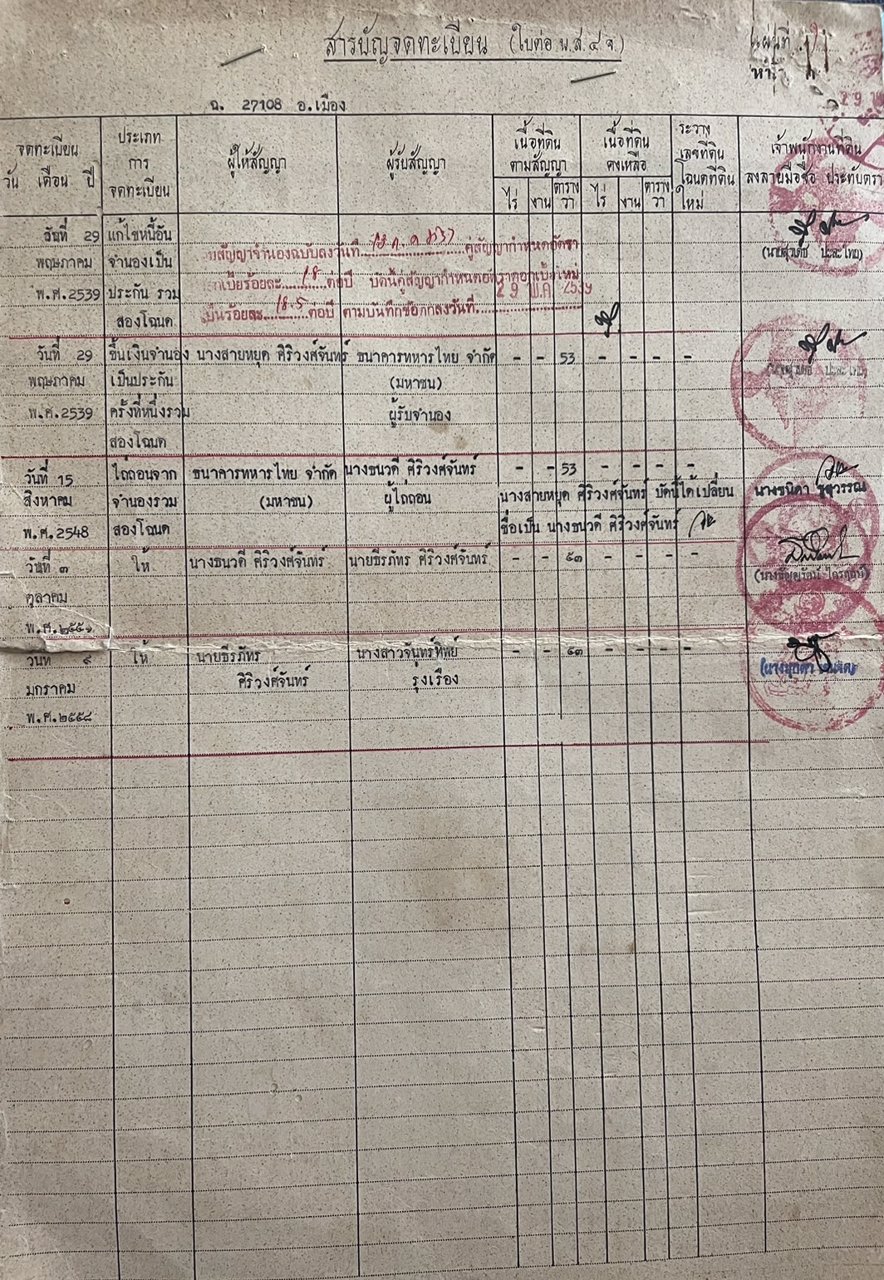 สารบัญจดทะเบียน (ใบต่อ น.ส.๔ จ.)
แผ่นที่
ฉ. 27108 อ.เมือง
จดทะเบียน
วัน เดือน ปี
ประเภท
การ
จดทะเบียน
ผู้ให้สัญญา
ผู้รับสัญญา
เนื้อที่ดิน
ตามสัญญา
ไร่ งาน ตาราง
วา
เนื้อที่ดิน
คงเหลือ
ไร่ งาน ตาราง
วา
ระวาง
เลขที่ดิน
โฉนดที่ดิน
ใหม่
เจ้าพนักงานที่ดิน
ลงลายมือชื่อ ประทับตรา
วันที่ 29 แก้ไขหนี้อัน
พฤษภาคม จำนองเป็น
พ.ศ.2539 ประกัน รวม
สองโฉนด
สัญญาจำนองฉบับลงวันที่ คู่สัญญากำหนดอัตรา
ดอกเบี้ยร้อยละ 18 ต่อปี บัดนี้คู่สัญญากำหนดอัตราดอกเบี้ยใหม่
เป็นร้อยละ 18.5 ต่อปี ตามบันทึกข้อตกลงวันที่ 29 พ.ค. 2539
วันที่ 29 ขึ้นเงินจำนอง นางสายหยุด ศิริวงศ์จันทร์ ธนาคารทหารไทย จำกัด - - 53 - - - -
พฤษภาคม เป็นประกัน (มหาชน)
พ.ศ.2539 ครั้งที่หนึ่งรวม ผู้รับจำนอง
สองโฉนด
วันที่ 15 ไถ่ถอนจาก ธนาคารทหารไทย จำกัด นางธนวดี ศิริวงศ์จันทร์ - - 53 - - - -
สิงหาคม จำนองรวม (มหาชน) ผู้ไถ่ถอน นางสายหยุด ศิริวงศ์จันทร์ บัดนี้ได้เปลี่ยน นางธนิดา
พ.ศ.2548 สองโฉนด ชื่อเป็น นางธนวดี ศิริวงศ์จันทร์
วันที่ ๓ ให้ นางธนวดี ศิริวงศ์จันทร์ นายธีรภัทร ศิริวงศ์จันทร์ - - ๕๓ - - - -
ตุลาคม
วันที่ ๙ ให้ นายธีรภัทร นางสาวจันทร์ทิพย์ - - ๕๓ - - - -
มกราคม ศิริวงศ์จันทร์ รุ่งเรือง
พ.ศ.๒๕๕๘